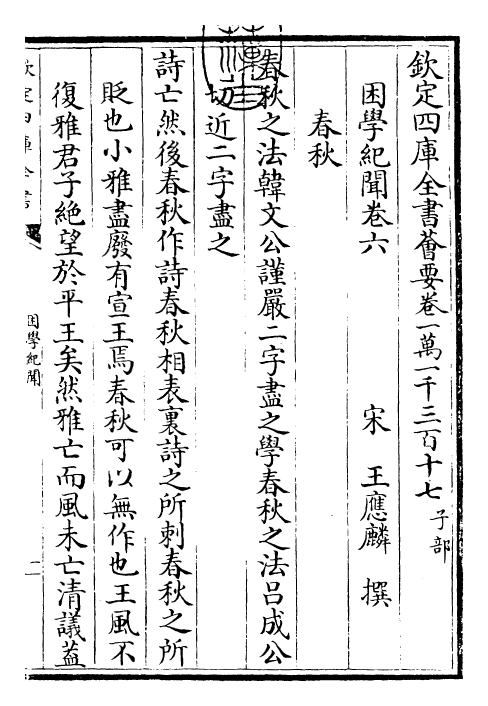 欽定四庫全書薈要卷一萬一千三百十七子部
困學紀聞卷六
宋 王應麟 撰
春秋
春秋之法韓文公謹嚴二字盡之學春秋之法吕成公
切近二字盡之
詩亡然後春秋作詩春秋相表裏詩之所刺春秋之所
貶也小雅盡廢有宣王焉春秋可以無作也王風不
復雅君子絶望於平王矣然雅亡而風未亡清議蓋
欽定四庫全書
困學紀聞